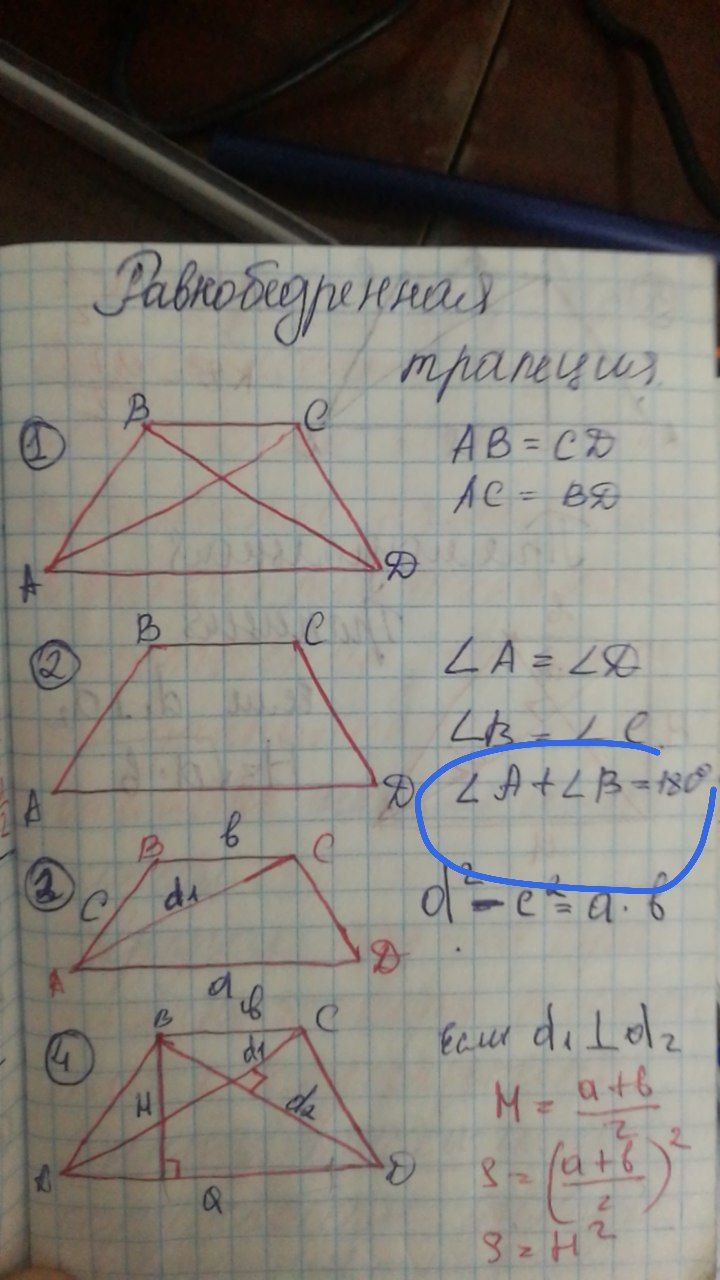 Равнобедренная
трапеция
1
B C
A D
AB = CD
AC = BD
2
B C
A D
∠A = ∠D
∠B = ∠C
∠A + ∠B = 180°
3
B в C
C d1
A D
a
d² - c² = a · в
4
B в C
d1
H d2
A D
a
Если d₁ ⊥ d₂
H = (a + в)/2
S = ((a + в)/2)²
S = H²